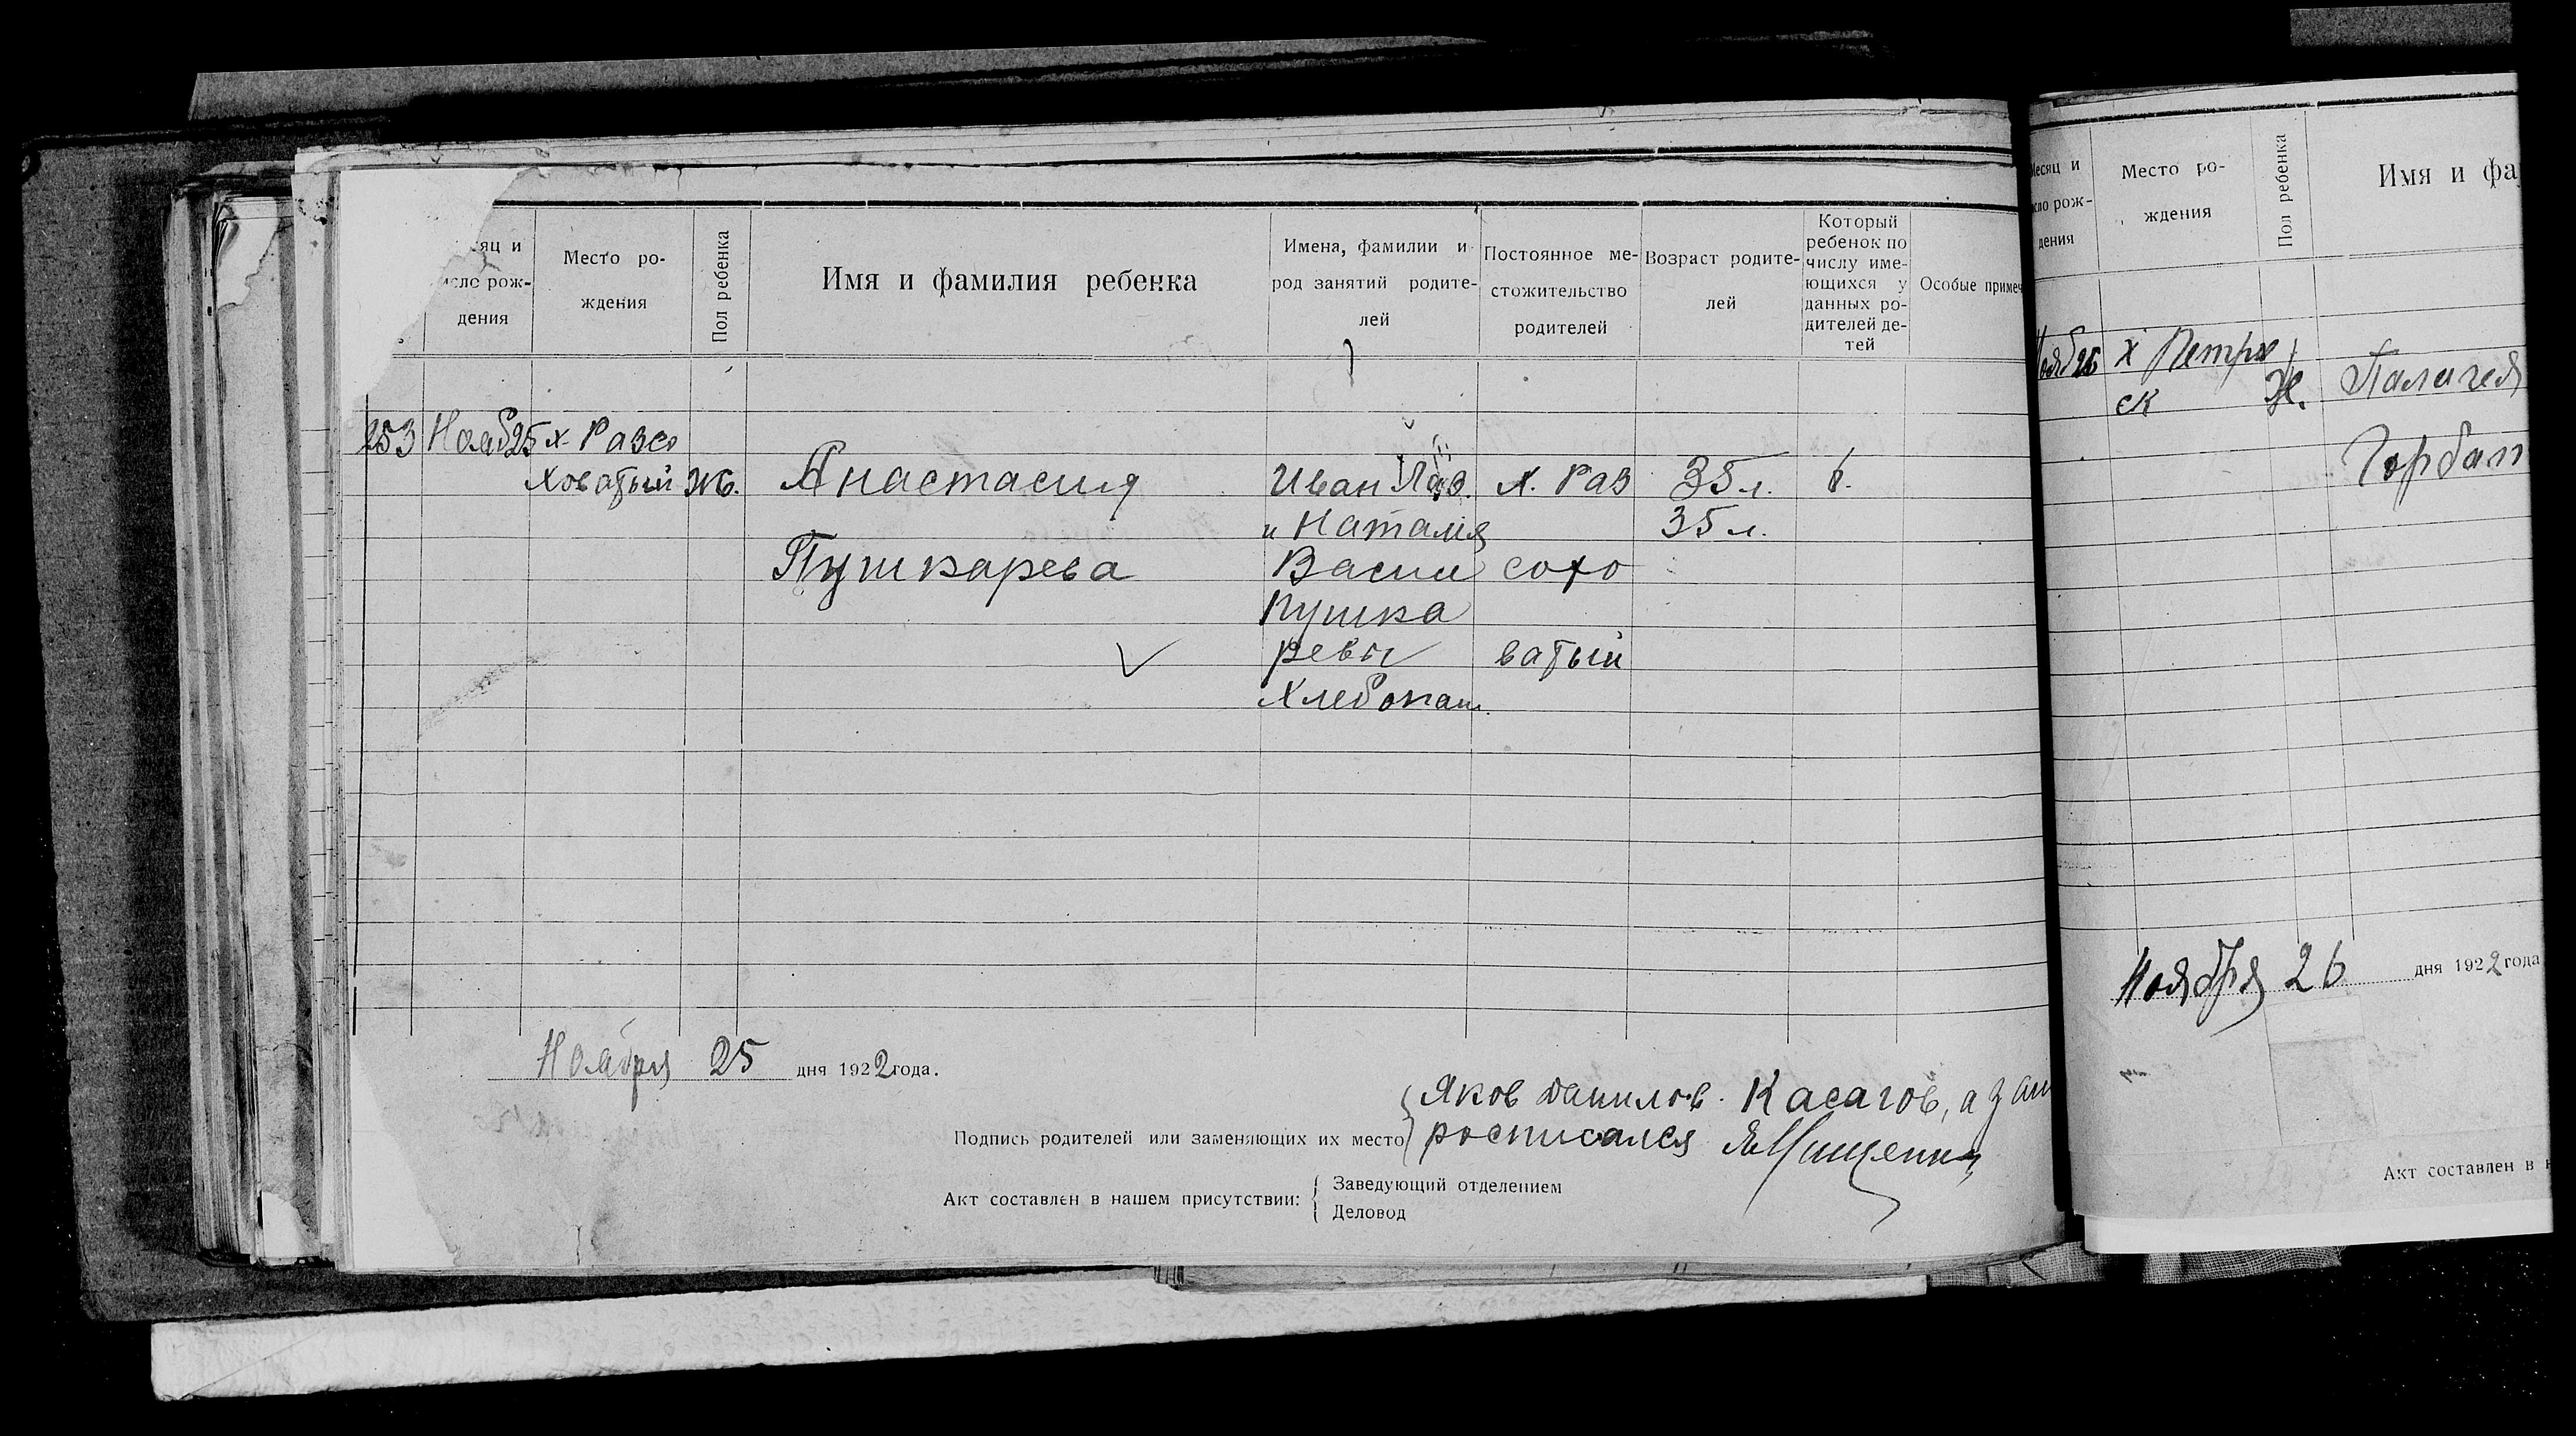 яц и
исло рож-
дения
Место ро-
ждения
Пол ребенка
Имя и фамилия ребенка
Имена, фамилии и
род занятий родите-
лей
Постоянное ме-
стожительство
родителей
Возраст родите-
лей
Который
ребенок по
числу име-
ющихся у
данных ро-
дителей де-
тей
Особые примеч
253 Нояб 25 х. Разсо
ховатый Ж. Анастасия Иван х. Раз 35 л. 6.
и Наталия 35 л.
Пушкарева Васил сохо
Пушка
ревы ватый
Хлебопаш.
Ноября 25 дня 1922 года.
Яков Данилов. Касагов, а за
Подпись родителей или заменяющих их место росписался
Акт составлен в нашем присутствии: Заведующий отделением
Деловод
Месяц и
сло рож-
дения
Место ро-
ждения
Пол ребенка
Имя и фа
Нояб 26 х Петро
ск Ж. Палагея
Горбат
Ноября 26 дня 1922 года
Акт составлен в н